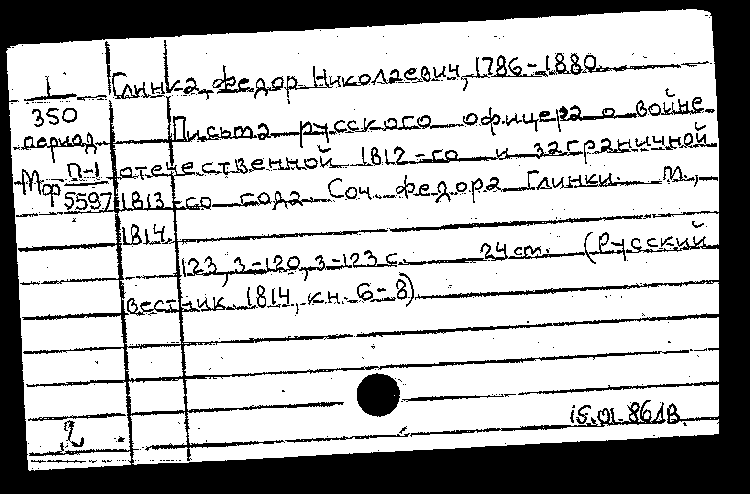 1 Глинка, Федор Николаевич, 1786-1880.
350
период. Письма русского офицера о войне
Мор П-1 отечественной 1812-го и заграничной
5597 1813-го года. Соч. Федора Глинки. М.,
1814.
123, 3-120, 3-123 с. 24 см. (Русский
вестник. 1814, кн. 6-8)
15.01.86
2